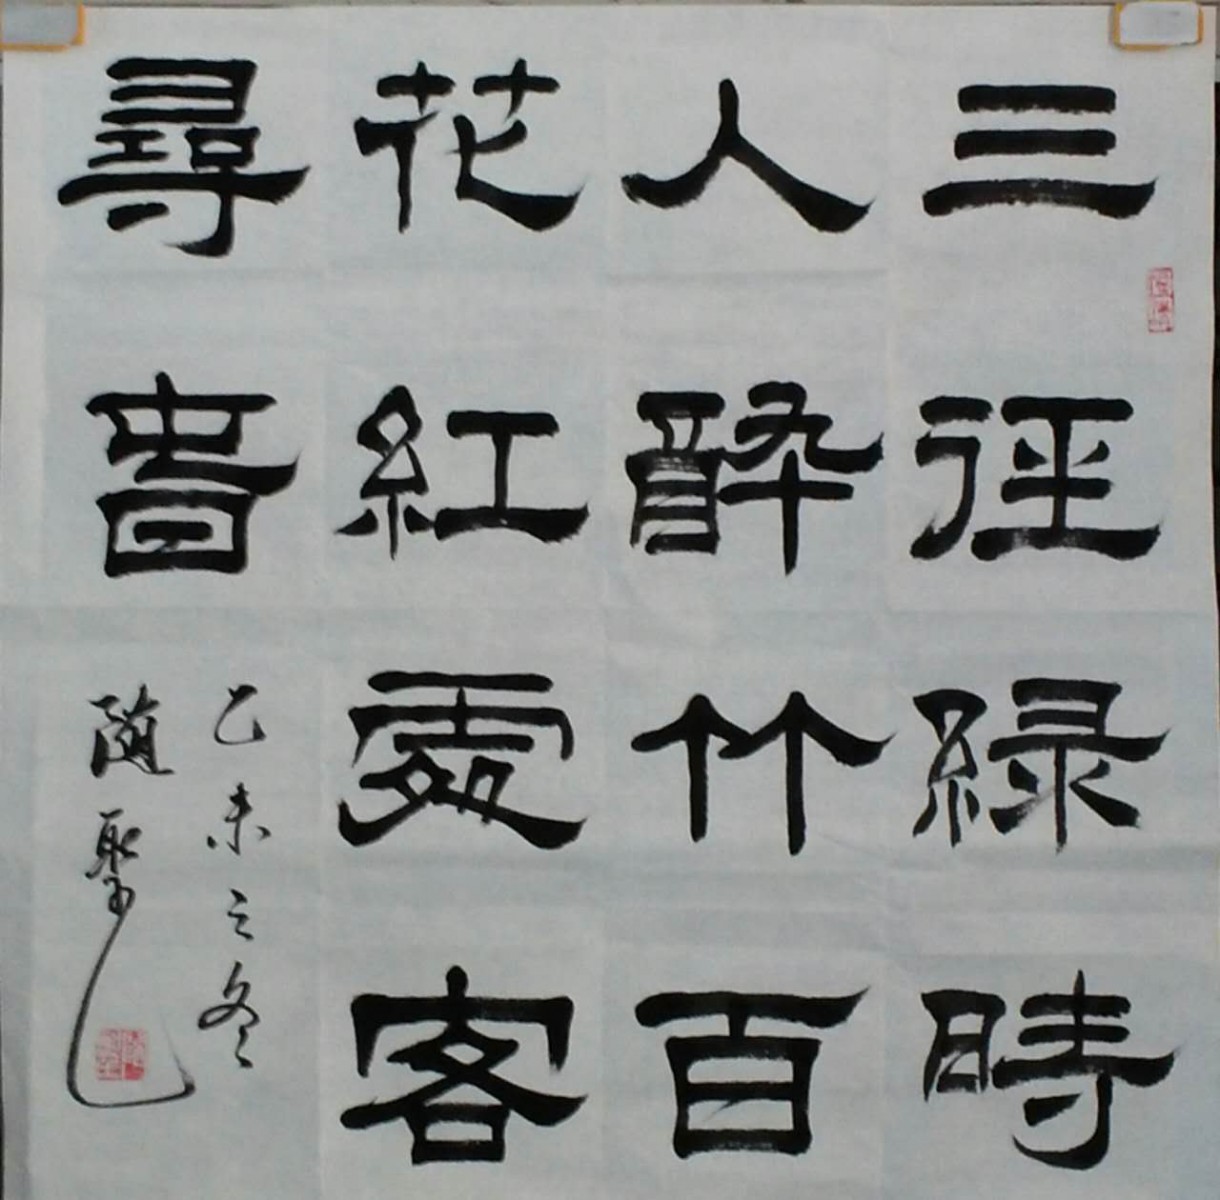 三徑綠時
人醉竹百
花紅處客
尋書
乙未之冬
随